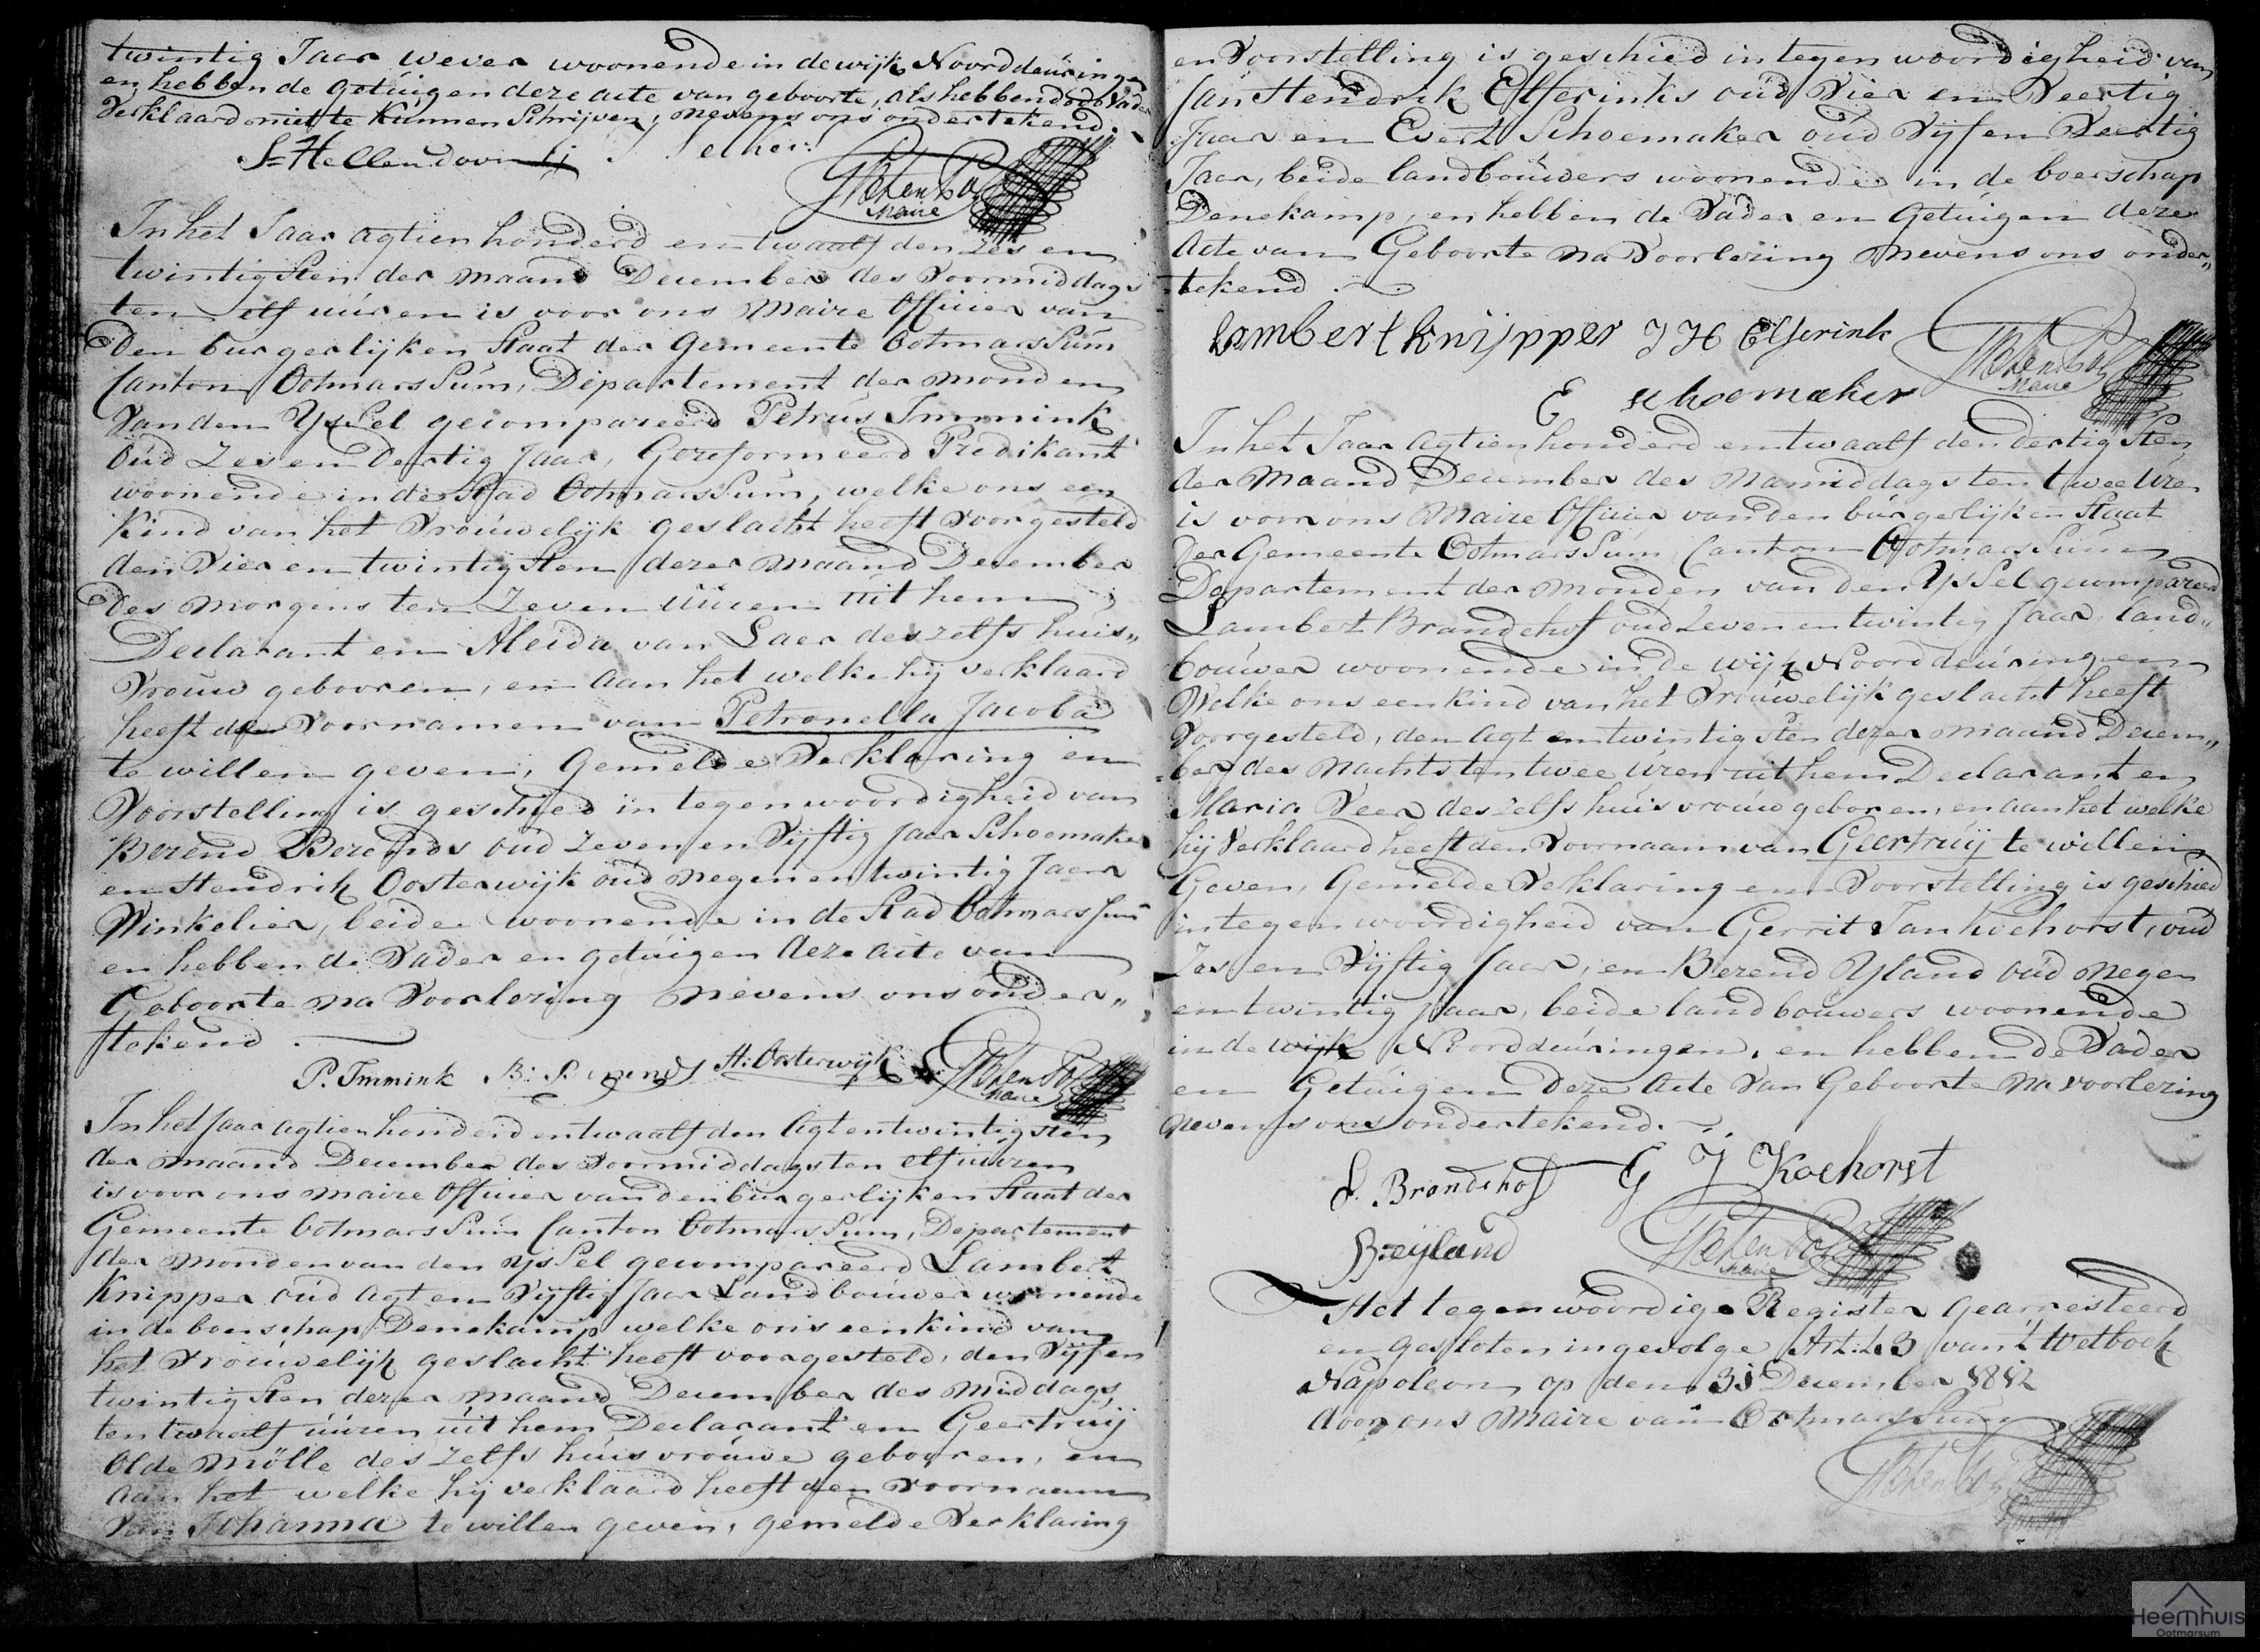 twintig Jaar wever woonende in de wijk Noorddeuringen
en hebben de getuigen deze acte van geboorte, als hebbende de Vader
Verklaard niet te kunnen Schrijven, nevens ons ondertekend.
S Hellendoorn
Maire
In het Jaar agtien honderd en twaalf den zes en
twintigsten der maand December des Voormiddags
ten elf uuren is voor ons Maire Officier van
den burgerlijken Staat der Gemeente OotmarsSum
Canton OotmarsSum, Departement der monden
Van den YsSel gecompareerd Petrus Immink
Oud Zes en Dertig Jaar, Gereformeerd Predikant
woonende in de Stad OotmarsSum, welke ons een
Kind van het Vrouwelijk geslacht heeft Voorgesteld
den Vier en twintigsten dezer maand December
des morgens ten Zeven uuren uit hem
Declarant en Aleida van Laer deszelfs huis„
Vrouw gebooren, en aan het welke hij verklaard
heeft de Voornamen van Petronella Jacoba
te willen geven, Gemelde Verklaring en
Voorstelling is geschied in tegenwoordigheid van
Berend Berends oud Zeven en Vijftig Jaar Schoemaker
en Hendrik Oosterwijk oud negen en twintig Jaar
Winkelier, beide woonende in de Stad OotmarsSum
en hebben de Vader en getuigen deze acte van
Geboorte na Voorlezing nevens ons onder„
tekend.
P. Immink B: Berends H: Oosterwijk
Maire
In het Jaar agtien honderd en twaalf den Agt en twintigsten
der maand December des Voormiddags ten elf uuren
is voor ons Maire Officier van den burgerlijken Staat der
Gemeente OotmarsSum Canton OotmarsSum, Departement
der monden van den YsSel gecompareerd Lambert
Knipper oud Agt en Vijftig Jaar Landbouwer woonende
in de boerschap Denekamp welke ons een kind van
het Vrouwelijk geslacht heeft voorgesteld, den Vijf en
twintigsten dezer maand December des middags,
ten twaalf uuren uit hem Declarant en Geertruij
Olde Mölle deszelfs huisvrouwe gebooren, en
aan het welke hij verklaard heeft den Voornaam
Van Johanna te willen geven, gemelde Verklaring
en Voorstelling is geschied in tegenwoordigheid van
Jan Hendrik Elferinks oud Vier en Veertig
Jaar en Evert Schoemaker oud Vijf en Veertig
Jaar, beide landbouwers woonende in de boerschap
Denekamp, en hebben de Vader en Getuigen deze
Acte van Geboorte na Voorlezing nevens ons onder„
tekend.
Lambert knijpper J H Elferink
Maire
E schoemaker
In het Jaar Agtien honderd en twaalf den dertigsten
der Maand December des Namiddags ten twee uren
is voor ons Maire Officier van den burgerlijken Staat
der Gemeente OotmarsSum Canton OotmarsSum
Departement der Monden van den YsSel gecompareerd
Lambert Brandehof oud Zeven en twintig Jaar, land„
bouwer woonende in de wijk Noorddeuringen
Welke ons een kind van het Vrouwelijk geslacht heeft
Voorgesteld, den Agt en twintigsten dezer maand Decem„
ber des Nachts ten twee uren uit hem Declarant en
Maria Veer deszelfs huisvrouw geboren, en aan het welke
hij Verklaard heeft den Voornaam van Geertruij te willen
Geven, Gemelde Verklaring en Voorstelling is geschied
in tegenwoordigheid van Gerrit Jan Koehorst, oud
Zes en Vijftig Jaar, en Berend Yland oud negen
en twintig Jaar, beide landbouwers woonende
in de wijk Noorddeuringen, en hebben de Vader
en Getuigen deze Acte van Geboorte na voorlezing
nevens ons ondertekend.
L. Brandehof G J Koehorst
B:eijland
Maire
Het tegenwoordige Register Gearresteerd
en gesloten ingevolge Art: 43 van 't Wetboek
Napoleon op den 31 December 1812
door ons Maire van OotmarsSum
Heemhuis
Ootmarsum